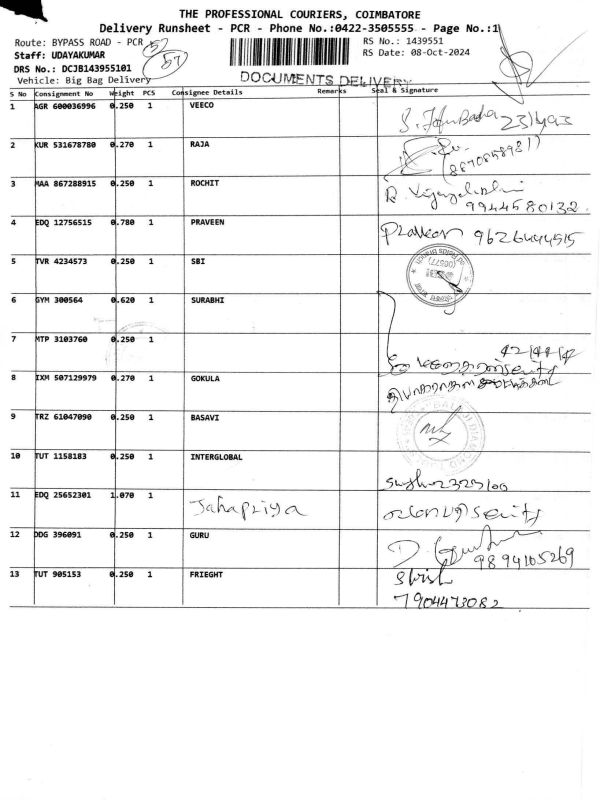 THE PROFESSIONAL COURIERS, COIMBATORE
Delivery Runsheet - PCR - Phone No.:0422-3505555 - Page No.:1
Route: BYPASS ROAD - PCR 57
RS No.: 1439551
Staff: UDAYAKUMAR
57
RS Date: 08-Oct-2024
DRS No.: DCJB143955101
Vehicle: Big Bag Delivery
DOCUMENTS DELIVERY
S No Consignment No Weight PCS Consignee Details Remarks Seal & Signature
1 AGR 600036996 0.250 1 VEECO
2 KUR 531678780 0.270 1 RAJA
3 MAA 867288915 0.250 1 ROCHIT
9944580132
4 EDQ 12756515 0.780 1 PRAVEEN Praveen 9626444515
5 TVR 4234573 0.250 1 SBI
6 GYM 300564 0.620 1 SURABHI
7 MTP 3103760 0.250 1
8 IXM 507129979 0.270 1 GOKULA
9 TRZ 61047090 0.250 1 BASAVI
10 TUT 1158183 0.250 1 INTERGLOBAL
11 EDQ 25652301 1.070 1 Jahapriya
12 DDG 396091 0.250 1 GURU
9894105269
13 TUT 905153 0.250 1 FRIEGHT
7904473082